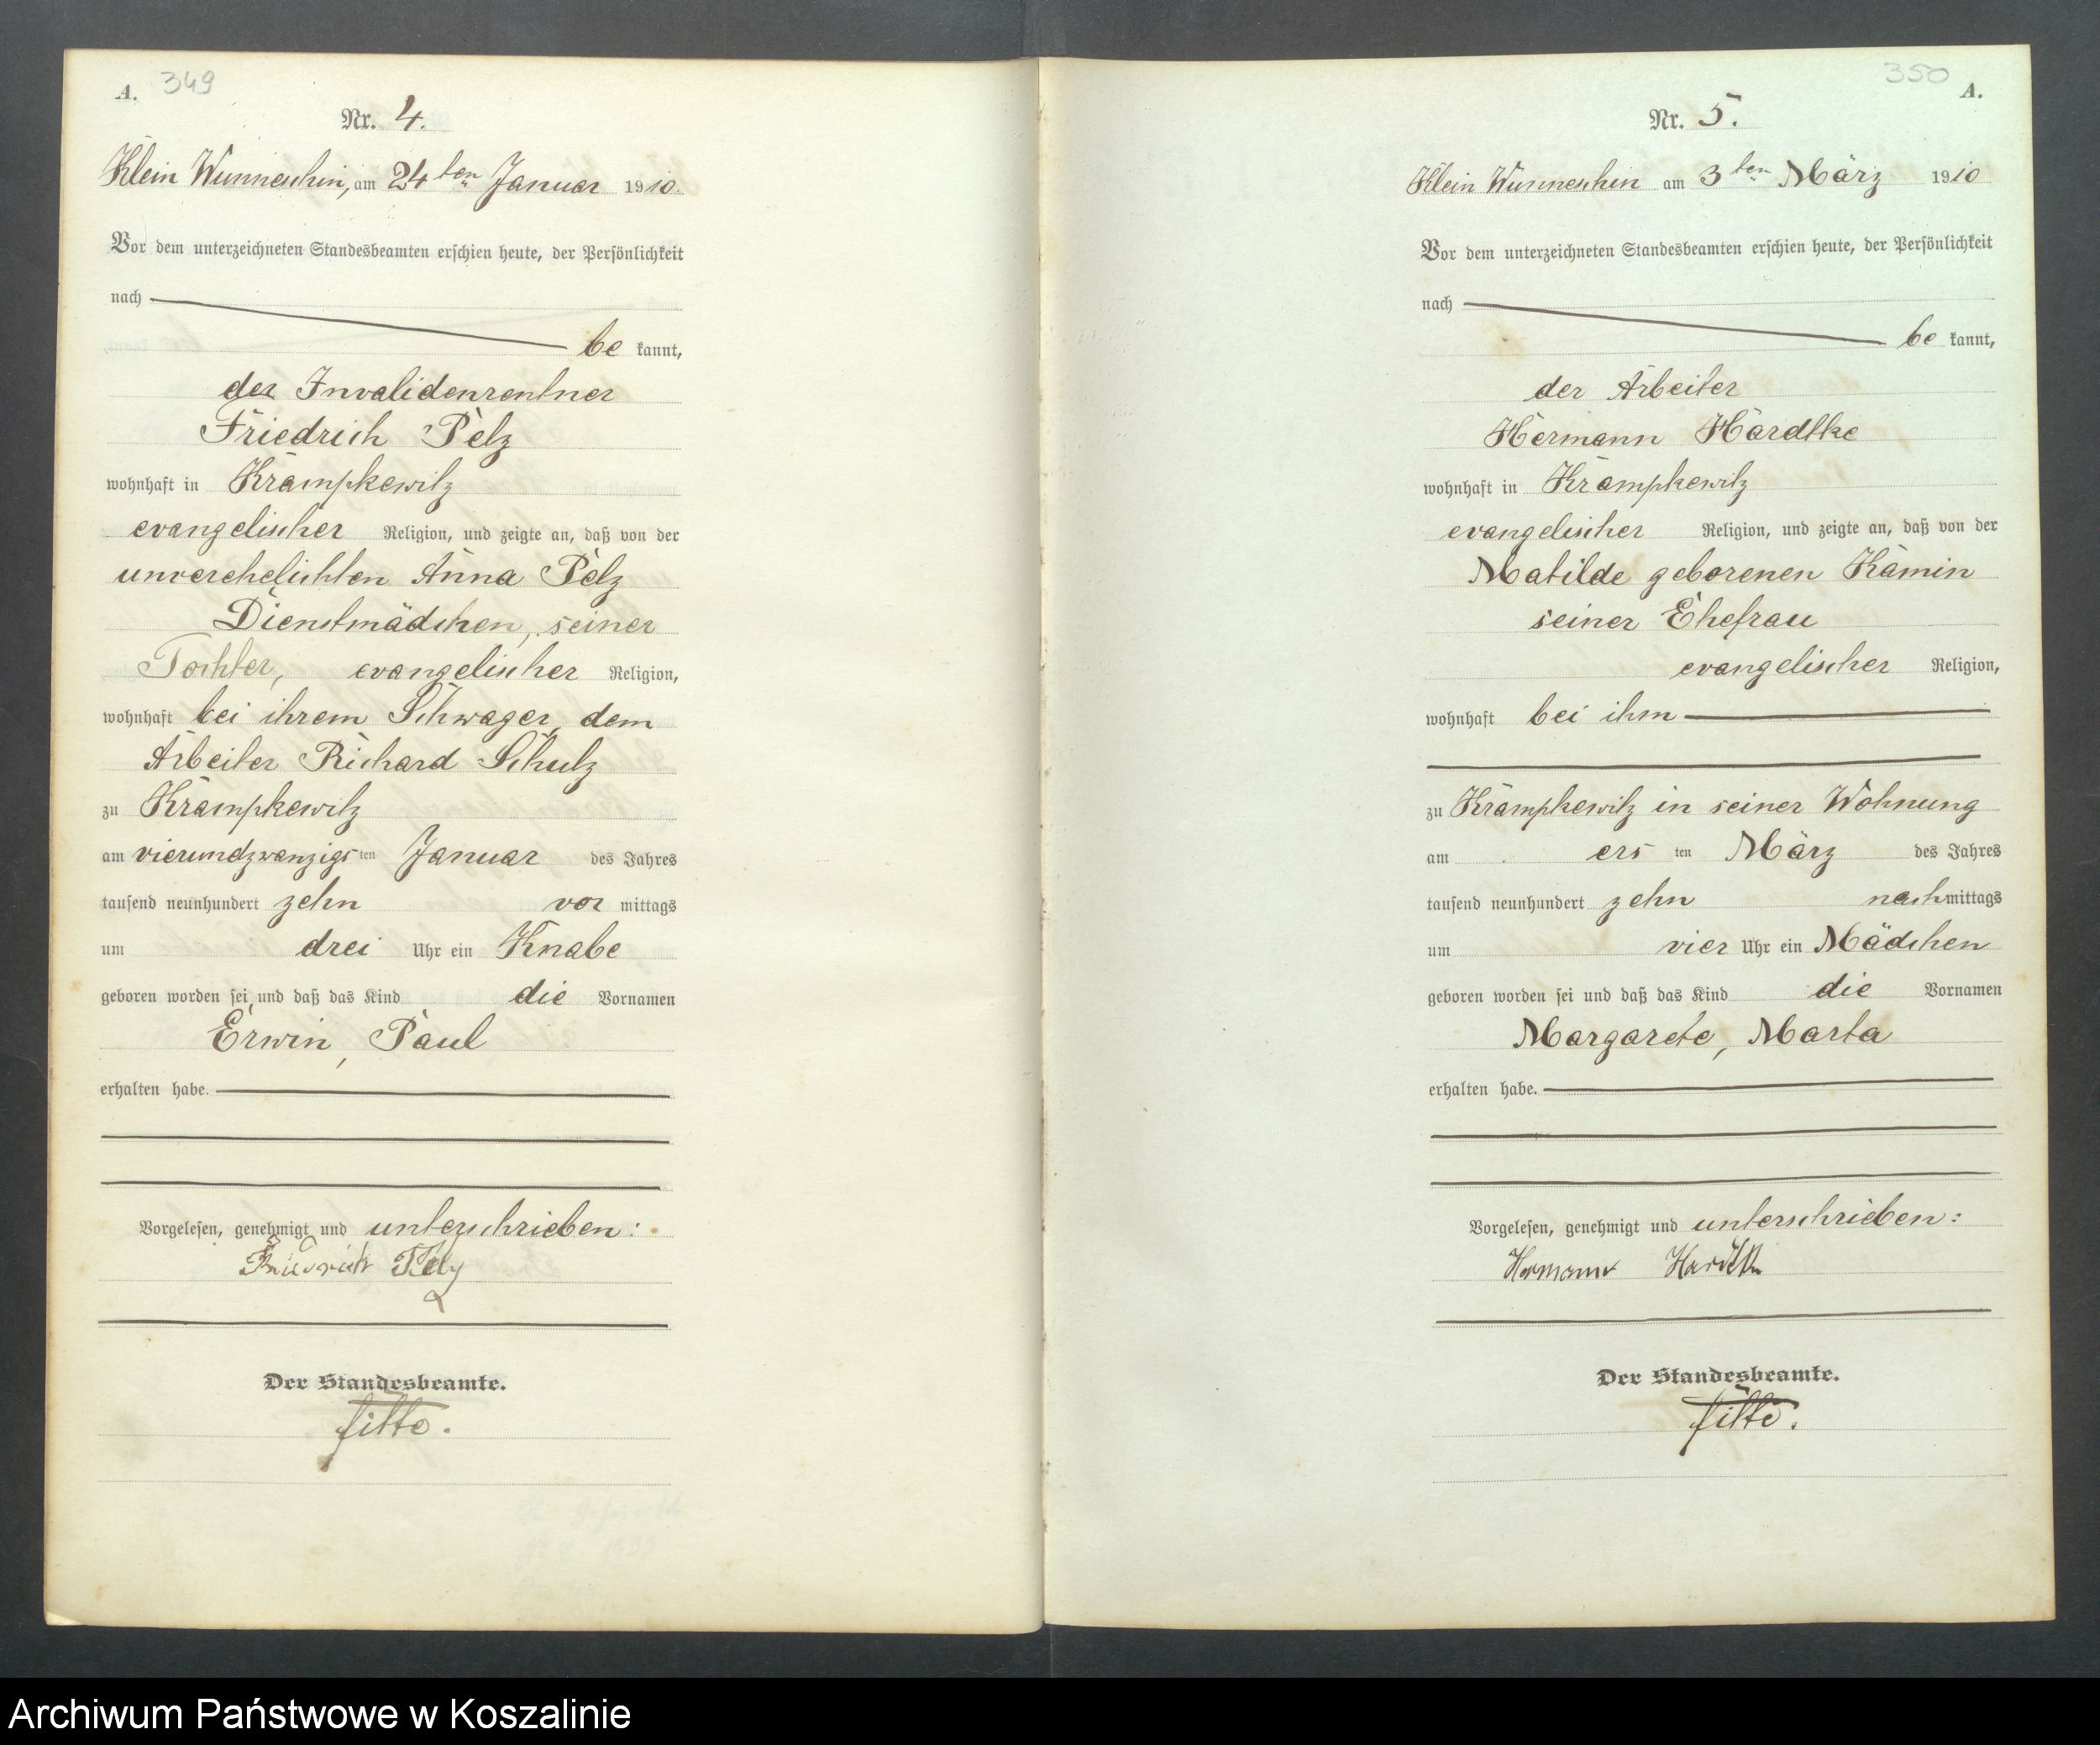 A. 349
Nr. 4.
Klein Wunneschin, am 24ten Januar 1910.
Vor dem unterzeichneten Standesbeamten erschien heute, der Persönlichkeit
nach
be kannt,
der Invalidenrentner
Friedrich Pelz
wohnhaft in Krampkewitz
evangelischer Religion, und zeigte an, daß von der
unverehelichten Anna Pelz
Dienstmädchen, seiner
Tochter, evangelischer Religion,
wohnhaft bei ihrem Schwager, dem
Arbeiter Richard Schulz
zu Krampkewitz
am vierundzwanzigs ten Januar des Jahres
tausend neunhundert zehn vor mittags
um drei Uhr ein Knabe
geboren worden sei, und daß das Kind die Vornamen
Erwin, Paul
erhalten habe.
Vorgelesen, genehmigt und unterschrieben:
Friedrich Pelz
Der Standesbeamte.
Titte.
350 A.
Nr. 5.
Klein Wunneschin am 3ten März 1910
Vor dem unterzeichneten Standesbeamten erschien heute, der Persönlichkeit
nach
be kannt,
der Arbeiter
Hermann Hardtke
wohnhaft in Krampkewitz
evangelischer Religion, und zeigte an, daß von der
Matilde geborenen Kamin
seiner Ehefrau
evangelischer Religion,
wohnhaft bei ihm
zu Krampkewitz in seiner Wohnung
am ers ten März des Jahres
tausend neunhundert zehn nach mittags
um vier Uhr ein Mädchen
geboren worden sei und daß das Kind die Vornamen
Margarete, Marta
erhalten habe.
Vorgelesen, genehmigt und unterschrieben:
Hermann Hardtke
Der Standesbeamte.
Titte.
Archiwum Państwowe w Koszalinie